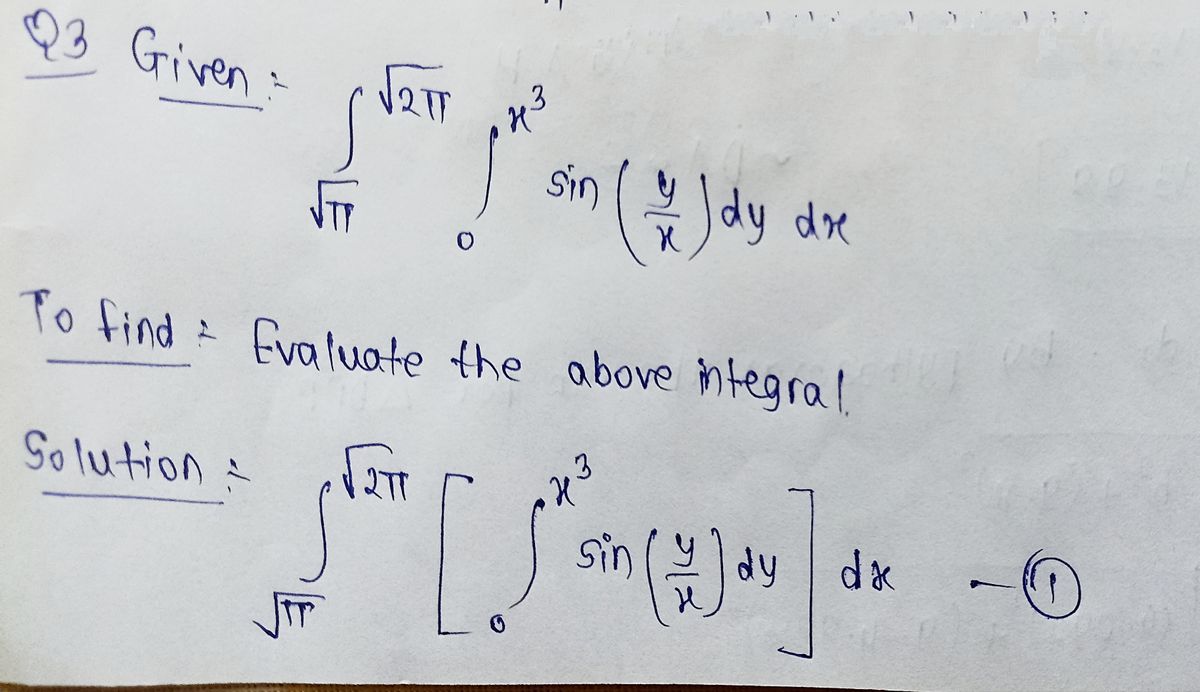 Q3 Given :-
∫_{√π}^{√2π} ∫_{0}^{x^3} sin (y/x) dy dx
To find :- Evaluate the above integral.
Solution :- ∫_{√π}^{√2π} [ ∫_{0}^{x^3} sin (y/x) dy ] dx - ①